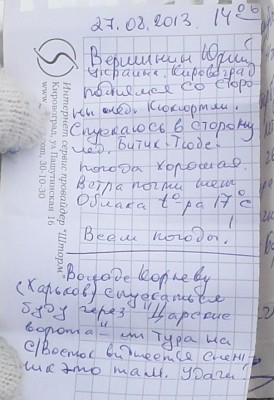 27.08.2013. 14 06
Вершинин Юрий
Украина. Кировоград
поднялся со сторо
ны лед. Кюкюртлю.
Спускаюсь в сторону
лед. Битик-Тюбе.
погода хорошая.
Ветра почти нет
Облака t°-ра 17°C
Всем погоды!
Володе Корневу
(Харьков) спускаться
буду через "Царские
ворота" от тура на
с/восток виднеется снеж
ник это там. Удачи!
Интернет сервис-провайдер "Шторм"
Кировоград, ул Пашутинская 16
www. .com, 30-10-30